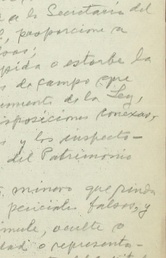 a la Secretaría del
proporcione a
pida o estorbe la
s de campo que
umento de la Ley,
isposiciones conexas,
s y los inspecto-
del Patrimonio
minoro que rinda
periciales falsos, y
mule, oculte o
dad o representa-